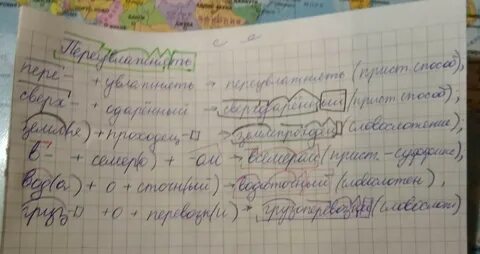 с а
Переувлажнять
пере- + увлажнять → переувлажнять (прист. способ),
сверх- + одарённый → сверходарённый (прист. способ),
земл(я) + проходец → землепроходец (словосложение),
в- + семер(о) + -ом → всемером (прист.-суффикс),
вод(а) + о + сточн(ый) → водосточный (словослотен),
груз + о + перевозк(и) → грузоперевозки (словослотн)